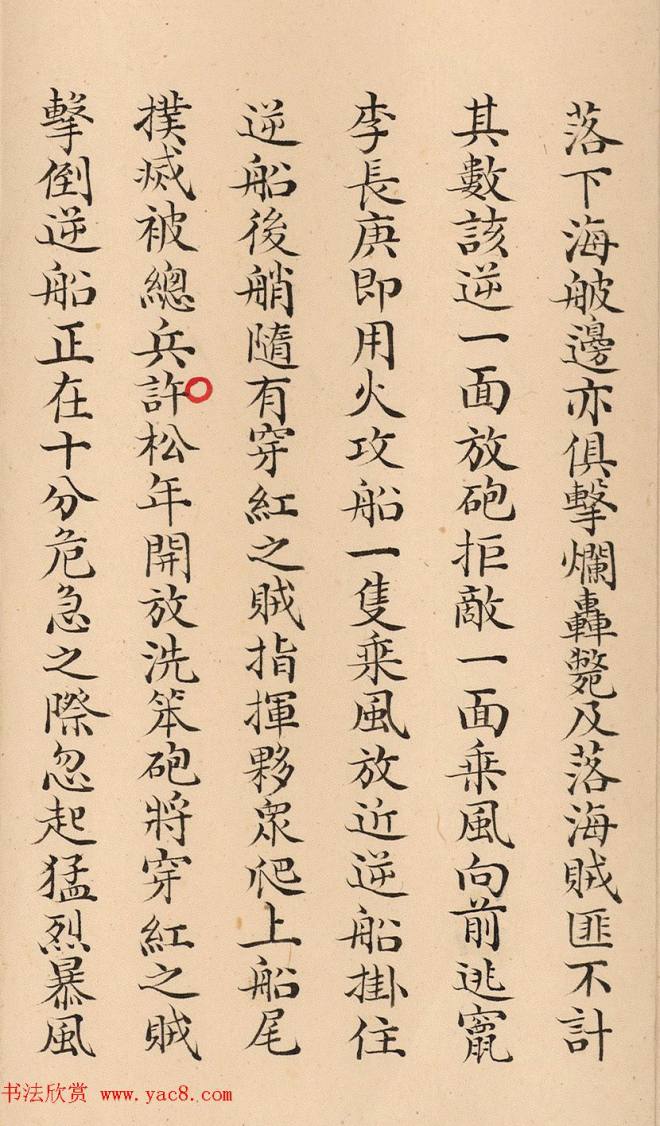 落下海舨邊亦俱擊爛轟斃及落海賊匪不計
其數該逆一面放砲拒敵一面乘風向前逃竄
李長庚即用火攻船一隻乘風放近逆船掛住
逆船後艄隨有穿紅之賊指揮夥眾爬上船尾
撲滅被總兵許松年開放洗笨砲將穿紅之賊
擊倒逆船正在十分危急之際忽起猛烈暴風
书法欣赏 www.yac8.com